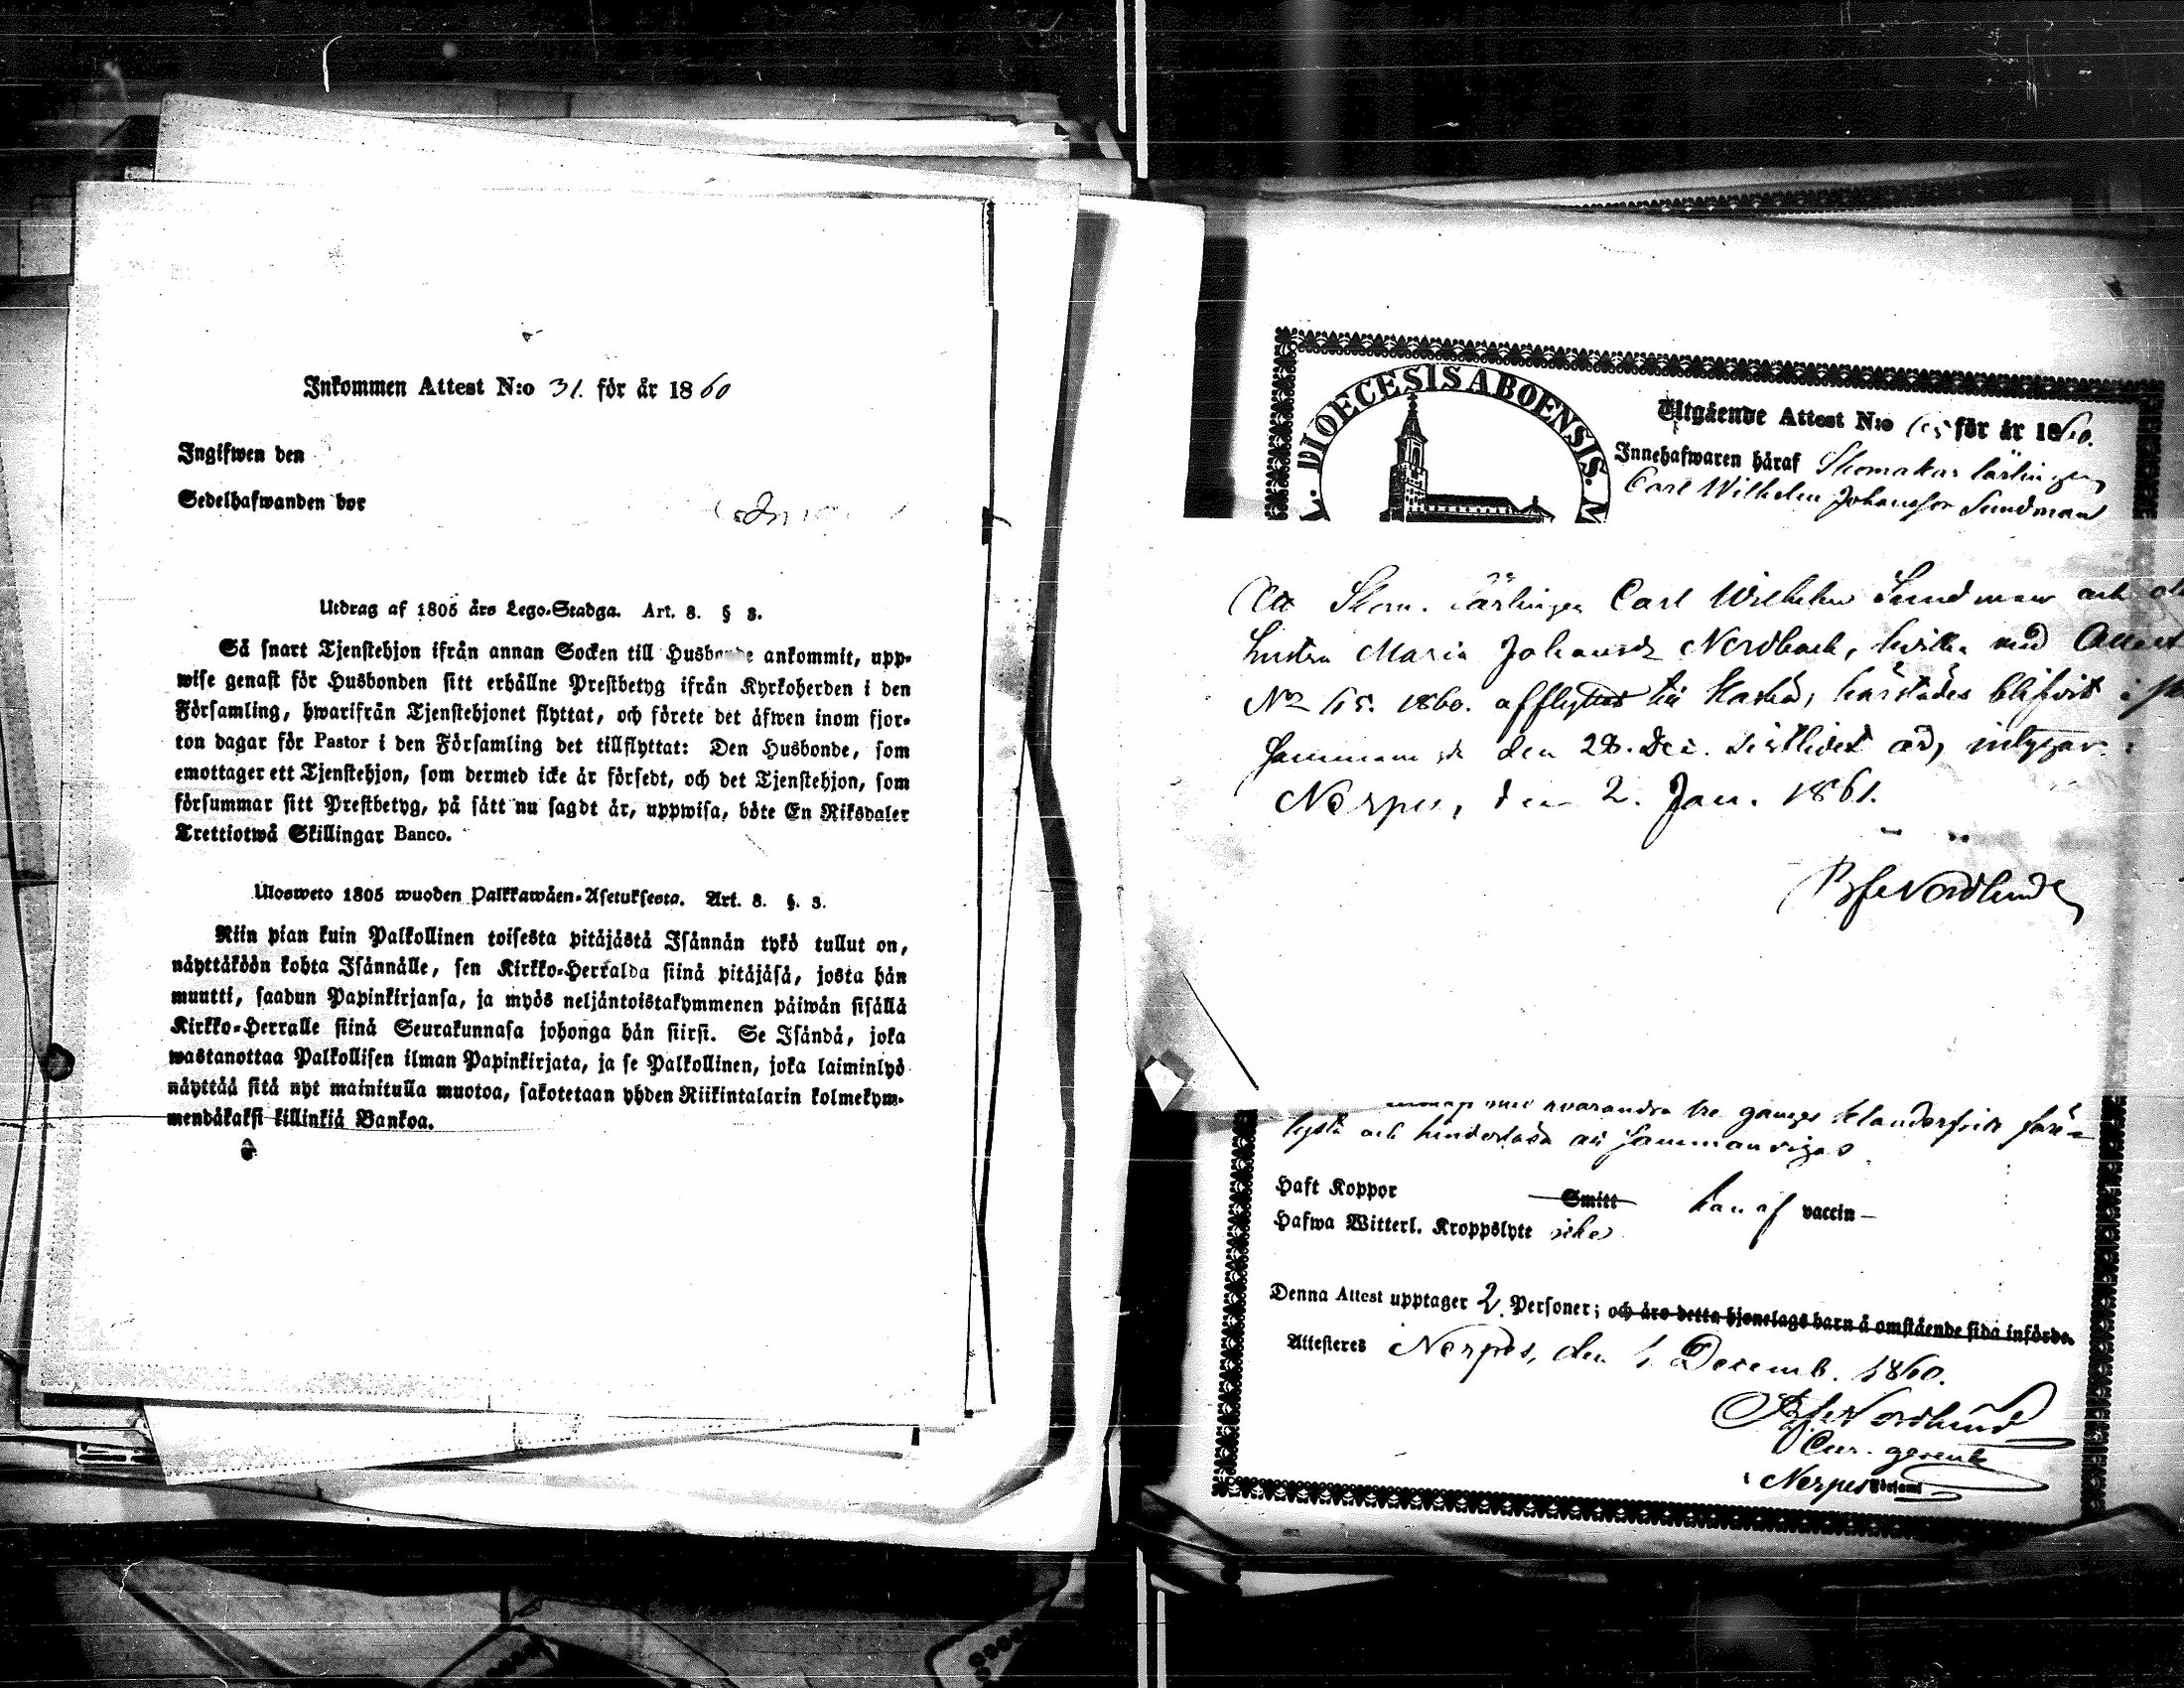 Inkommen Attest N:o 31. för år 1860
Ingifwen den
Sedelhafwanden bor
Utdrag af 1805 års Lego-Stadga. Art. 8. § 3.
Så snart Tjenstehjon ifrån annan Socken till Husbonde ankommit, upp-
wise genast för Husbonden sitt erhållne Prestbetyg ifrån Kyrkoherden i den
Församling, hwarifrån Tjenstehjonet flyttat, och förete det äfwen inom fjor-
ton dagar för Pastor i den Församling det tillflyttat: Den Husbonde, som
emottager ett Tjenstehjon, som dermed icke är försedt, och det Tjenstehjon, som
försummar sitt Prestbetyg, på sätt nu sagdt är, uppwisa, böte En Riksdaler
Trettiotwå Skillingar Banco.
Ulosweto 1805 wuoden Palkkawäen-Asetuksesta. Art. 8. §. 3.
Niin pian kuin Palkollinen toisesta pitäjästä Isännän tykö tullut on,
näyttäköön kohta Isännälle, sen Kirkko-Herralda siinä pitäjäsä, josta hän
muutti, saadun Papinkirjansa, ja myös neljäntoistakymmenen päiwän sisällä
Kirkko-Herralle siinä Seurakunnasa johonga hän siirsi. Se Isändä, joka
wastanottaa Palkollisen ilman Papinkirjata, ja se Palkollinen, joka laiminlyö
näyttää sitä nyt mainitulla muotoa, sakotetaan yhden Riikintalarin kolmekym-
mendäkaksi killinkiä Bankoa.
DIOECESIS ABOENSIS. M
Utgående Attest N:o för år 1860.
Innehafwaren häraf Skomakar lärlingen
Carl Wilhelm Johansson Sundman
Att Skom. lärlingen Carl Wilhelm Sundman och
hustru Maria Johansdr Nordback, hvilka med Attest
No 65. 1860. afflyttat till Kaskö, härstädes blifvit i
den 28. Dec. sistlidet år, intygar.
Nerpes, den 2. Jan. 1861.
Nordlund
med hvarandra tre gånger klanderfritt
lysta och hinderlösa att sammanvigas
Haft Koppor Smitt han af vaccin
Hafwa Witterl. Kroppslyte icke
Denna Attest upptager 2 Personer; och äro detta hjonelags barn å omstående sida införde.
Attesteres Nerpes, den 1 Decemb. 1860.
Nordlund
Nerpes Församl